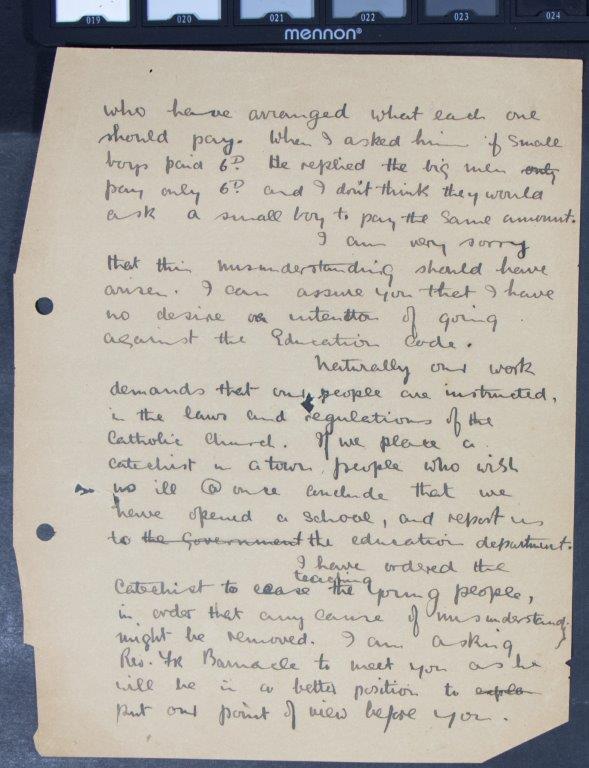 019 020 021 022 023 024
mennon®
who have arranged what each one
should pay. When I asked him if small
boys paid 6D He replied the big men only
pay only 6D and I don't think they would
ask a small boy to pay the same amount.
I am very sorry
that this misunderstanding should have
arisen. I can assure you that I have
no desire or intention of going
against the Education Code.
Naturally our work
demands that our people are instructed,
in the laws and regulations of the
Catholic Church. If we place a
catechist in a town, people who wish
us ill @ once conclude that we
have opened a school, and report us
to the Government the education department.
I have ordered the
teaching
Catechist to cease the young people,
in order that any cause of misunderstand.
might be removed. I am asking
Rev. Fr Barnacle to meet you as he
will be in a better position to explain
put our point of view before you.